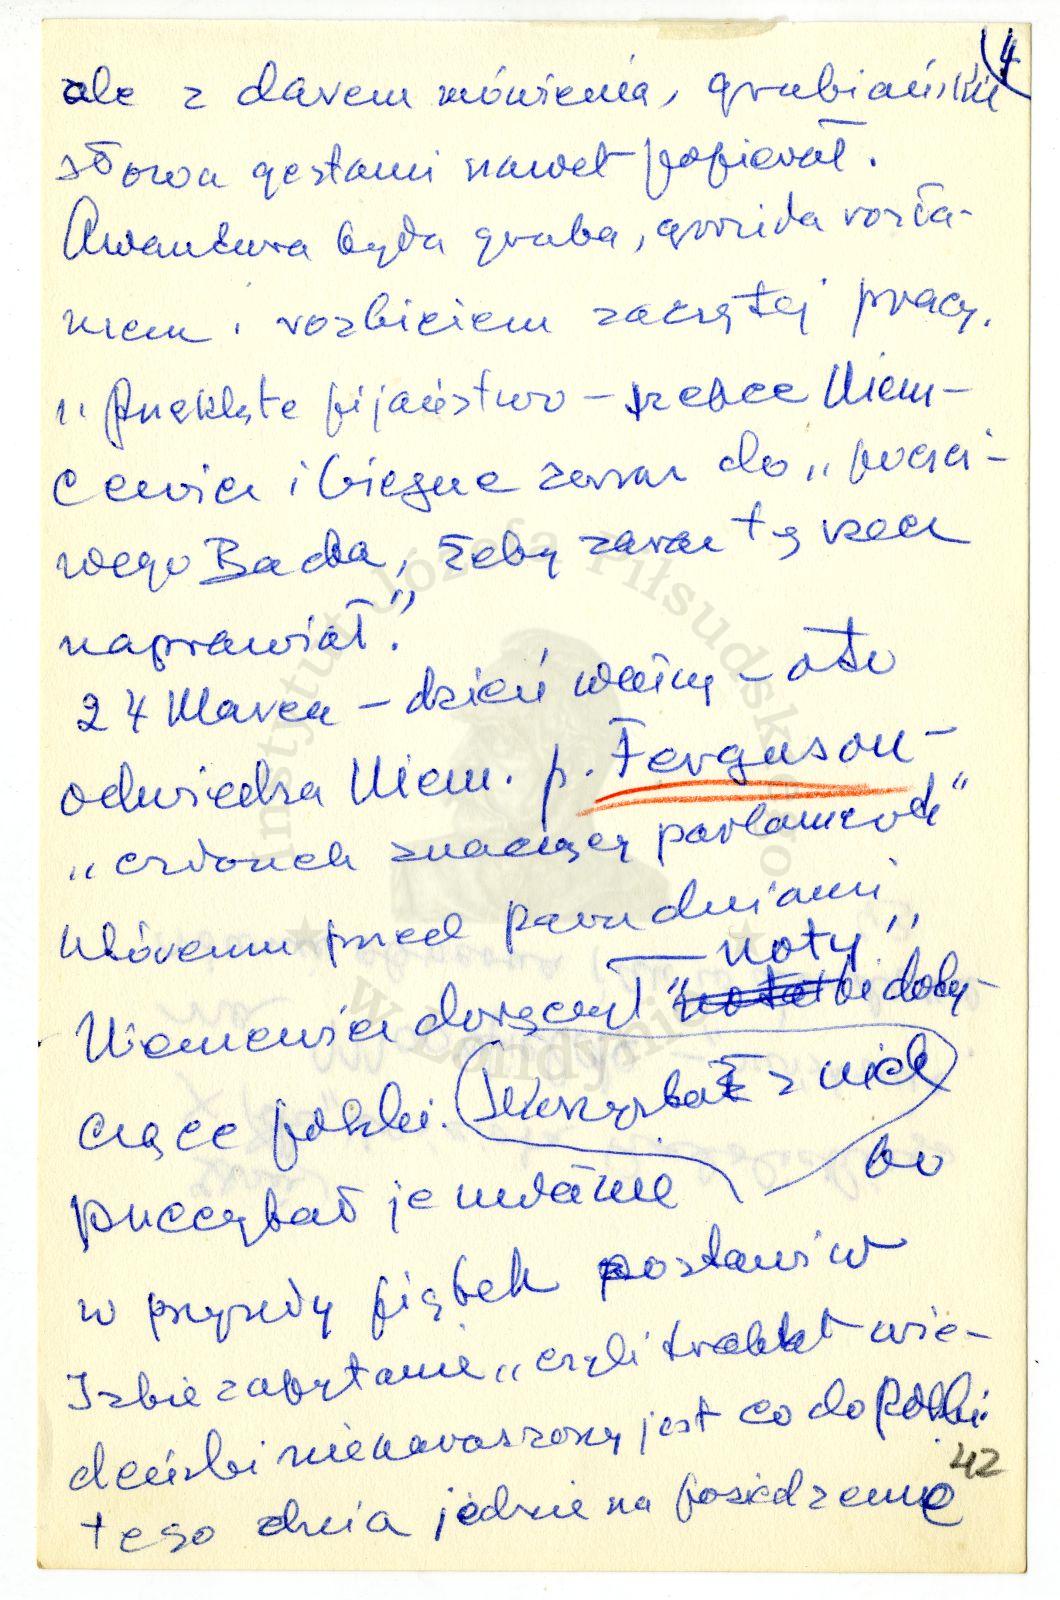 4
ale z darem mówienia, grubiańskie
słowa gestami nawet popierał.
Awantura była gruba, groziła rozła-
mem i rozbiciem zaczętej pracy.
"Przeklęte pijaństwo – rzecze Niem-
cewicz i biegnę zaraz do "poczci-
wego Bacha, żeby zaraz tę rzecz
naprawiał."
24 Marca – dzień ważny – oto
odwiedza Niem. p. Ferguson –
"członek znaczący parlamentu"
któremu przed paru dniami
Niemcewicz doręczył "noty"
doty-
czące Polski. Skorzystał z nich
bo
przeczytał je uważnie
w przyszły piątek postawi w
Izbie zapytanie "czyli traktat wie-
deński nienaruszony jest co do Polski.
42
tego dnia jedzie na posiedzenie
Instytut Józefa Piłsudskiego
w Londynie